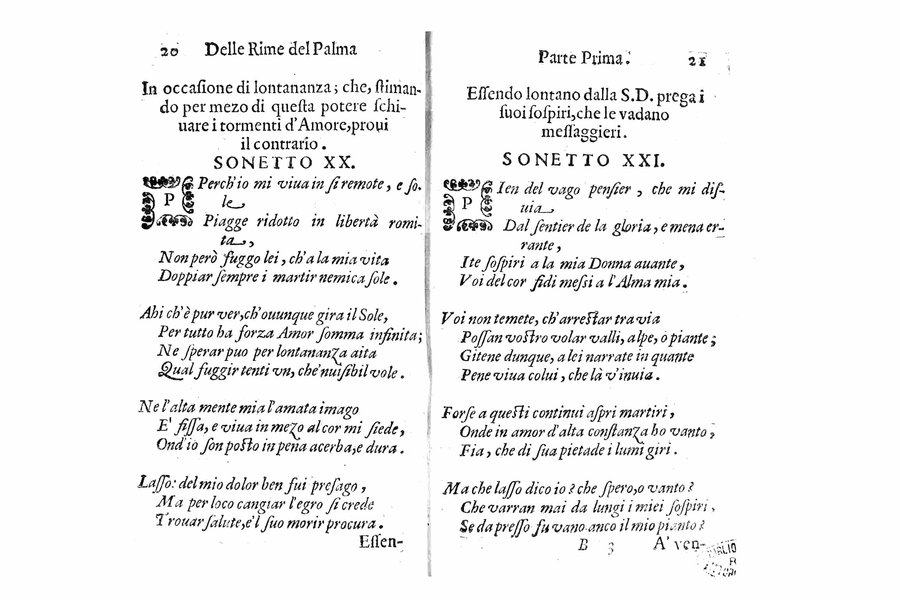 20 Delle Rime del Palma
In occaſione di lontananza; che, ſtiman-
do per mezo di queſta potere ſchi-
uare i tormenti d'Amore, proui
il contrario.
SONETTO XX.
PErch'io mi viua in ſi remote, e ſo-
le
Piagge ridotto in libertà romi-
ta,
Non però fuggo lei, ch'a la mia vita
Doppiar ſempre i martir nemica ſole.
Ahi ch'è pur ver, ch'ouunque gira il Sole,
Per tutto ha forza Amor ſomma infinita;
Ne ſperar puo per lontananza aita
Qual fuggir tenti vn, che'nuiſibil vole.
Ne l'alta mente mia l'amata imago
E' fiſſa, e viua in mezo al cor mi ſiede,
Ond'io ſon poſto in pena acerba, e dura.
Laſſo: del mio dolor ben fui preſago,
Ma per loco cangiar l'egro ſi crede
Trouar ſalute, e'l ſuo morir procura.
Eſſen-
Parte Prima. 21
Eſſendo lontano dalla S.D. prega i
ſuoi ſoſpiri, che le vadano
meſſaggieri.
SONETTO XXI.
PIen del vago penſier, che mi diſ-
uia
Dal ſentier de la gloria, e mena er-
rante,
Ite ſoſpiri a la mia Donna auante,
Voi del cor fidi meſſi a l'Alma mia.
Voi non temete, ch'arreſtar tra via
Poſſan voſtro volar valli, alpe, o piante;
Gitene dunque, a lei narrate in quante
Pene viua colui, che là v'inuia.
Forſe a queſti continui aſpri martiri,
Onde in amor d'alta conſtanza ho vanto,
Fia, che di ſua pietade i lumi giri.
Ma che laſſo dico io? che ſpero, o vanto?
Che varran mai da lungi i miei ſoſpiri,
Se da preſſo fu vano anco il mio pianto?
B 3 A' ven-